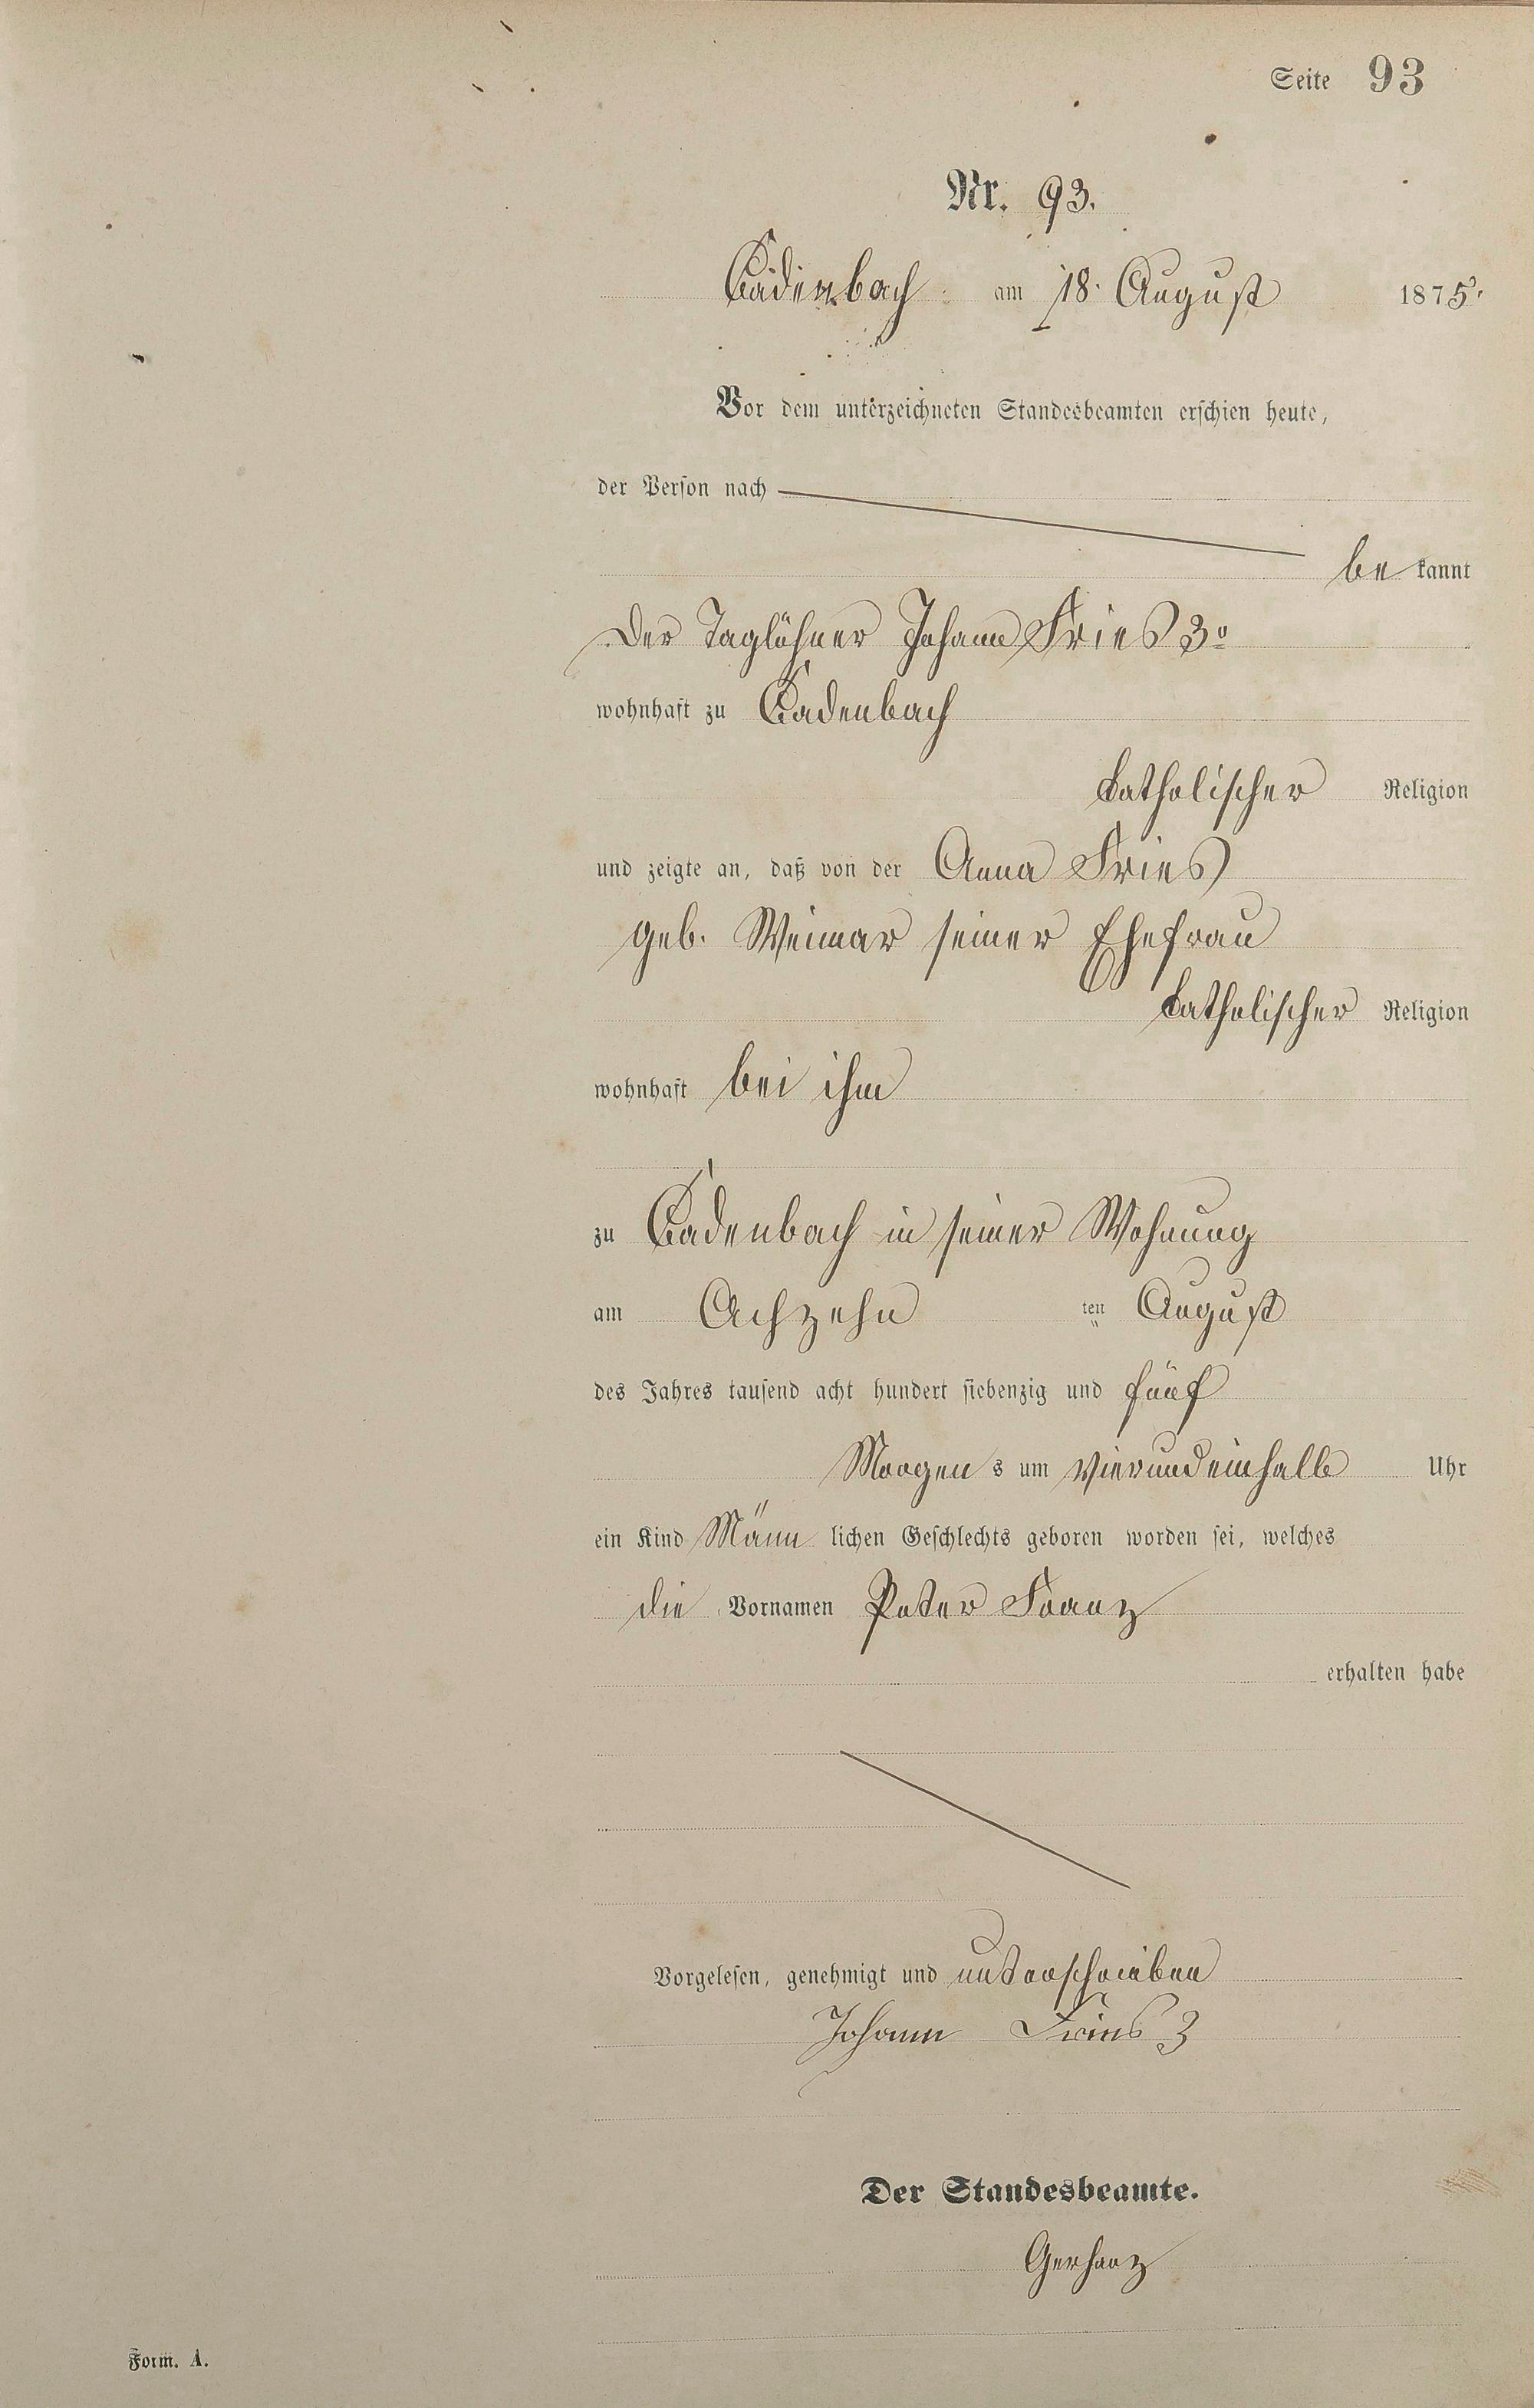 Seite 93
Nr. 93.
Cadenbach am 18. August 1875.
Vor dem unterzeichneten Standesbeamten erschien heute,
der Person nach
be kannt
Der Taglöhner Johann Fries 3º
wohnhaft zu Cadenbach
katholischer Religion
und zeigte an, daß von der Anna Fries
geb. Weimar seiner Ehefrau
katholischer Religion
wohnhaft bei ihm
zu Cadenbach in seiner Wohnung
am Achzehn ten August
des Jahres tausend acht hundert siebenzig und fünf
Morgen s um vierundeinhalb Uhr
ein Kind Männ lichen Geschlechts geboren worden sei, welches
die Vornamen Peter Franz
erhalten habe
Vorgelesen, genehmigt und unterschrieben
Johann Fries 3
Der Standesbeamte.
Gerharz
Form. A.